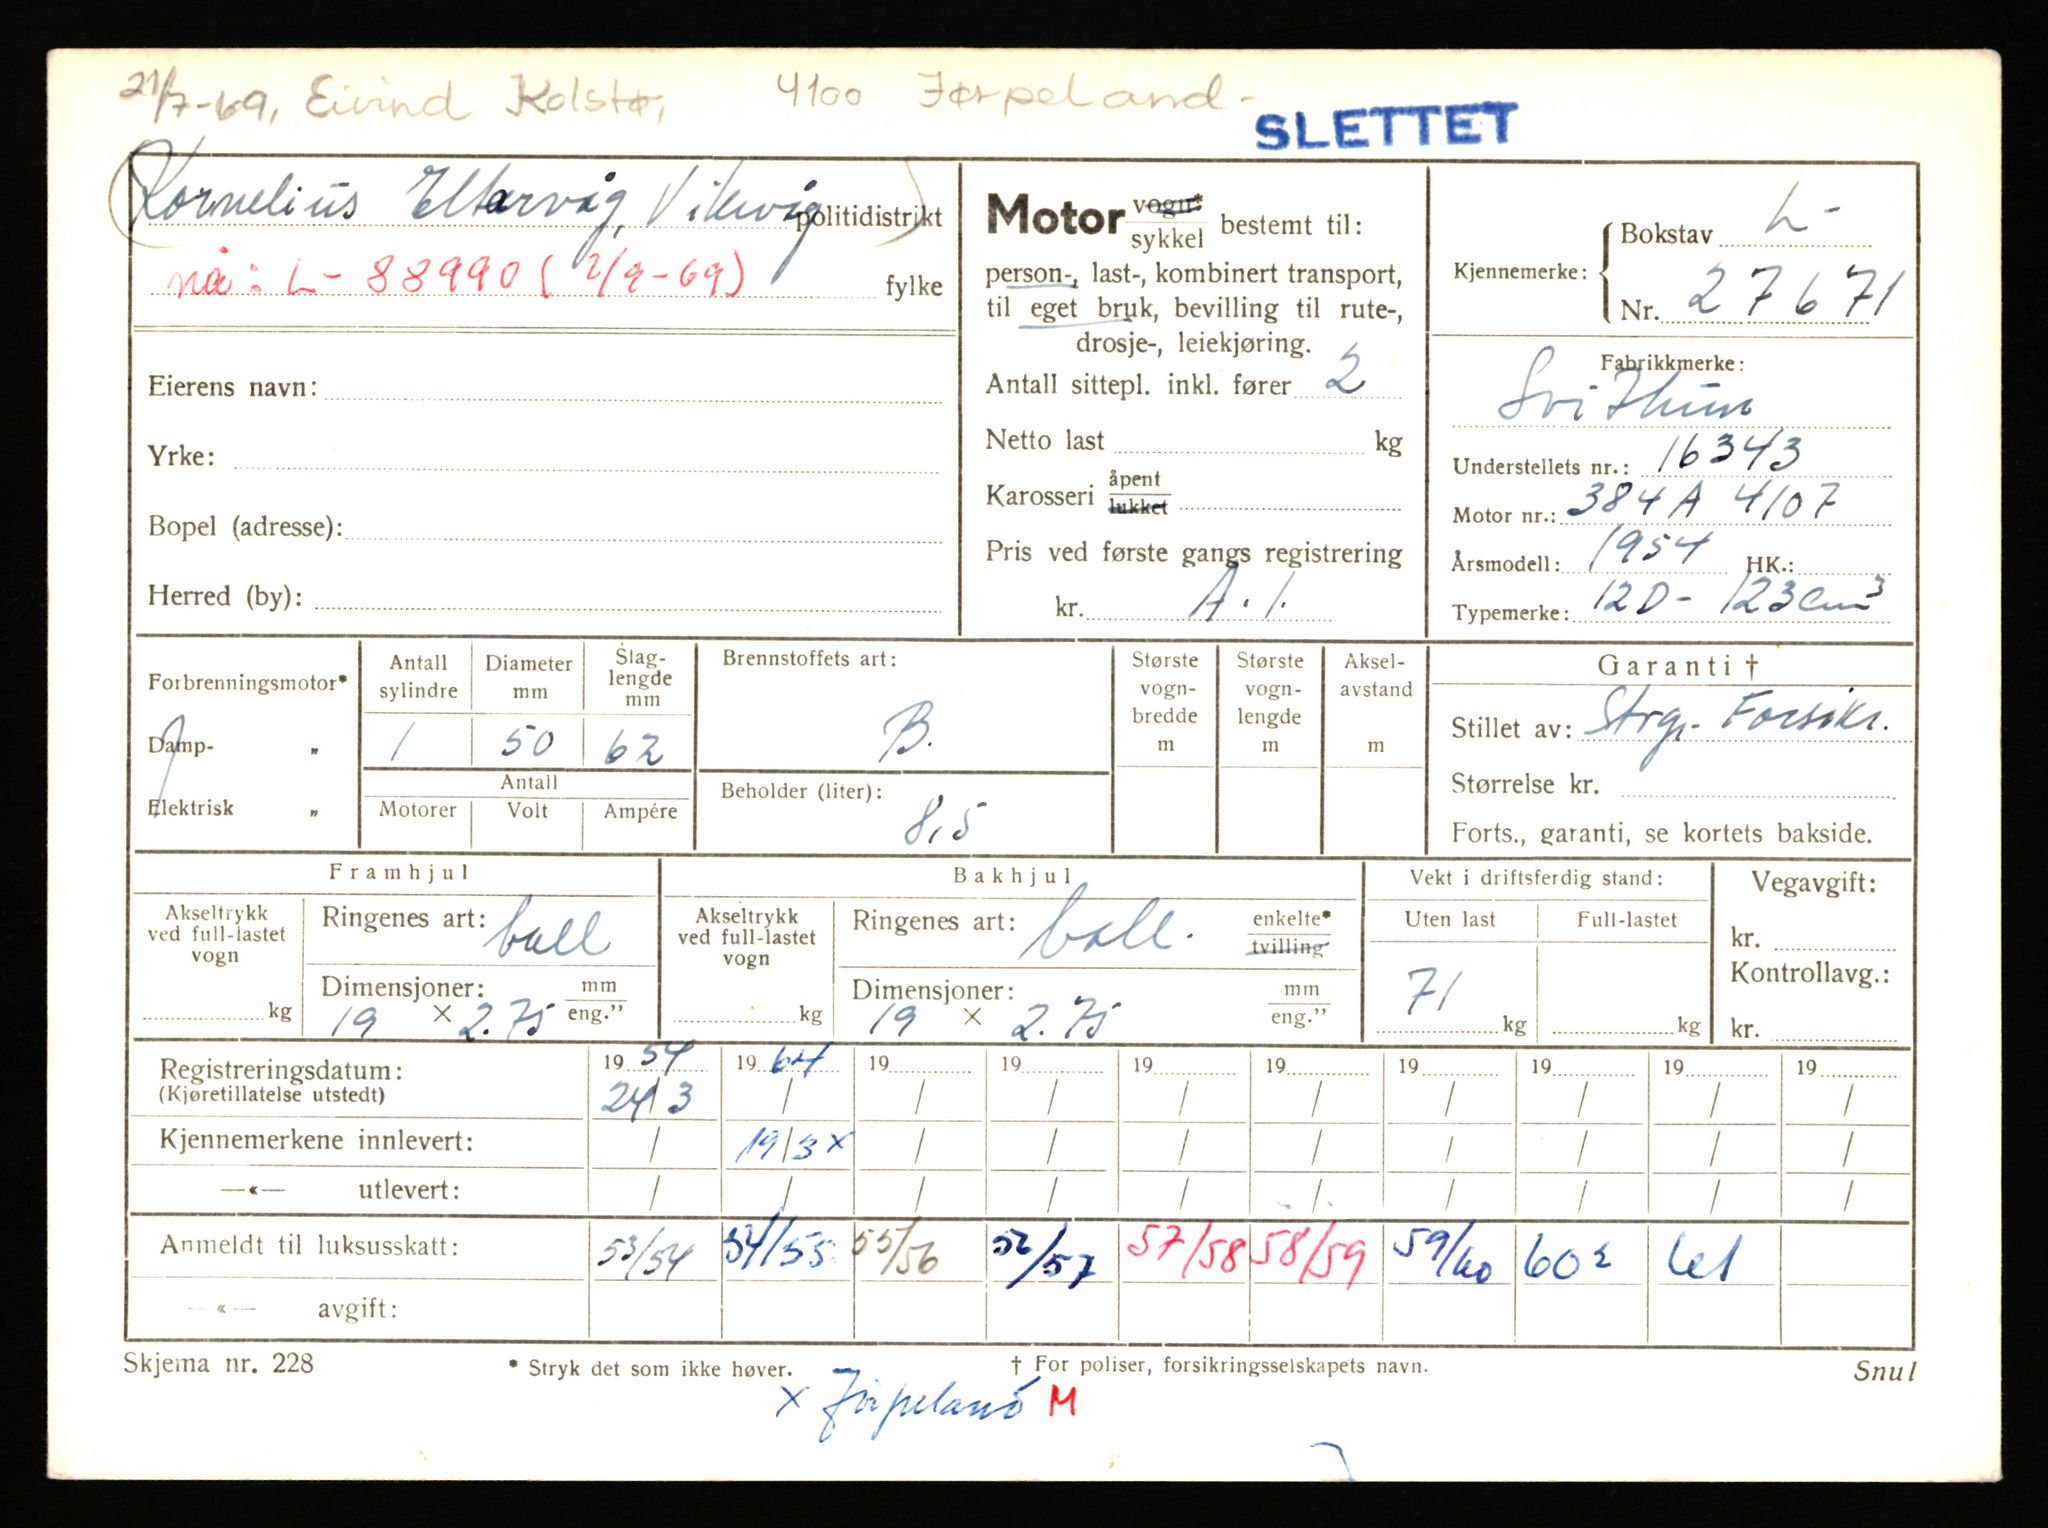 21/7-69, Eivind Kolstø, 4100 Jørpeland-
SLETTET
(Kornelius Eltarvåg, Vikevåg) politidistrikt
nå: L- 88990 (2/9-69) fylke
Eierens navn:
Yrke:
Bopel (adresse):
Herred (by):
Motor vogn* sykkel bestemt til:
person-, last-, kombinert transport,
til eget bruk, bevilling til rute-,
drosje-, leiekjøring.
Antall sittepl. inkl. fører 2
Netto last kg
Karosseri åpent lukket
Pris ved første gangs registrering
kr. A.1.
Kjennemerke: Bokstav L-
Nr. 27671
Fabrikkmerke:
Svithun
Understellets nr.: 16343
Motor nr.: 384A 4107
Årsmodell: 1954 HK.:
Typemerke: 12D- 123cm3
Forbrenningsmotor*
Damp- „
Elektrisk „
Antall sylindre 1
Diameter mm 50
Slag-lengde mm 62
Antall
Motorer Volt Ampére
Brennstoffets art:
B.
Beholder (liter):
8,5
Største vogn-bredde m
Største vogn-lengde m
Aksel-avstand m
Garanti †
Stillet av: Strgr. Forsikr.
Størrelse kr.
Forts., garanti, se kortets bakside.
Framhjul
Akseltrykk ved full-lastet vogn kg
Ringenes art: ball
Dimensjoner: mm eng."
19 × 2.75
Bakhjul
Akseltrykk ved full-lastet vogn kg
Ringenes art: ball. enkelte* tvilling
Dimensjoner: mm eng."
19 × 2.75
Vekt i driftsferdig stand:
Uten last Full-lastet
71 kg kg
Vegavgift:
kr.
Kontrollavg.:
kr.
Registreringsdatum: 19 54 19 64 19 19 19 19 19 19 19 19
(Kjøretillatelse utstedt) 24/3 / / / / / / / / /
Kjennemerkene innlevert: / 19/3 x / / / / / / / /
—«— utlevert: / / / / / / / / / /
Anmeldt til luksusskatt: 53/54 54/55 55/56 56/57 57/58 58/59 59/60 60² 61
—«— avgift:
Skjema nr. 228 * Stryk det som ikke høver. † For poliser, forsikringsselskapets navn. Snul
x Jørpeland M